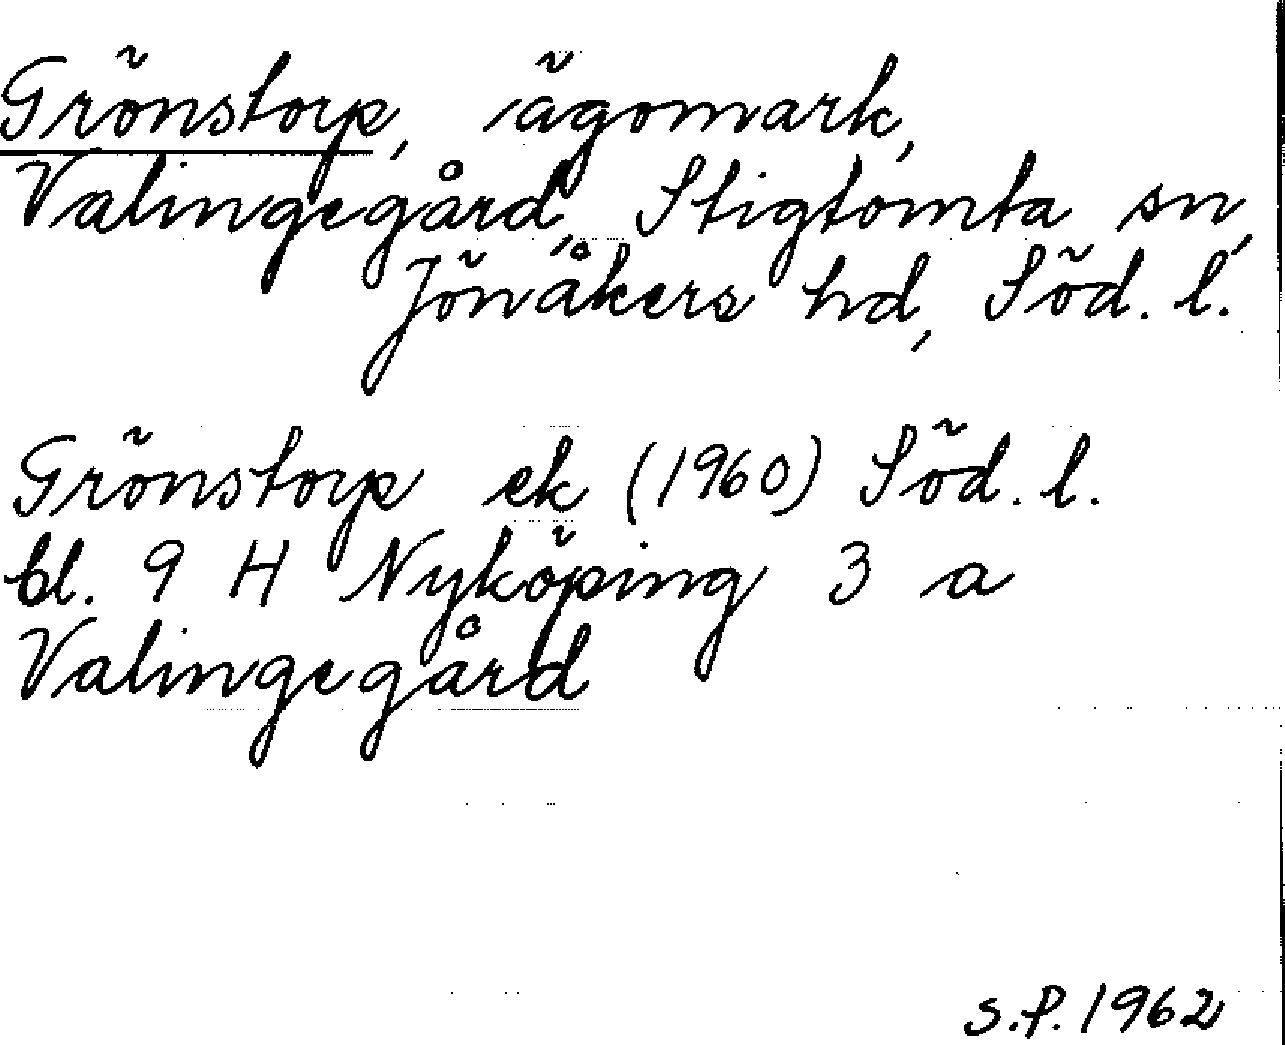 Grönstorp, ägomark,
Valingegård, Stigtomta sn,
Jönåkers hd, Söd. l.
Grönstorp ek (1960) Söd. l.
bl. 9 H Nyköping 3 a
Valingegård
S.P. 1962